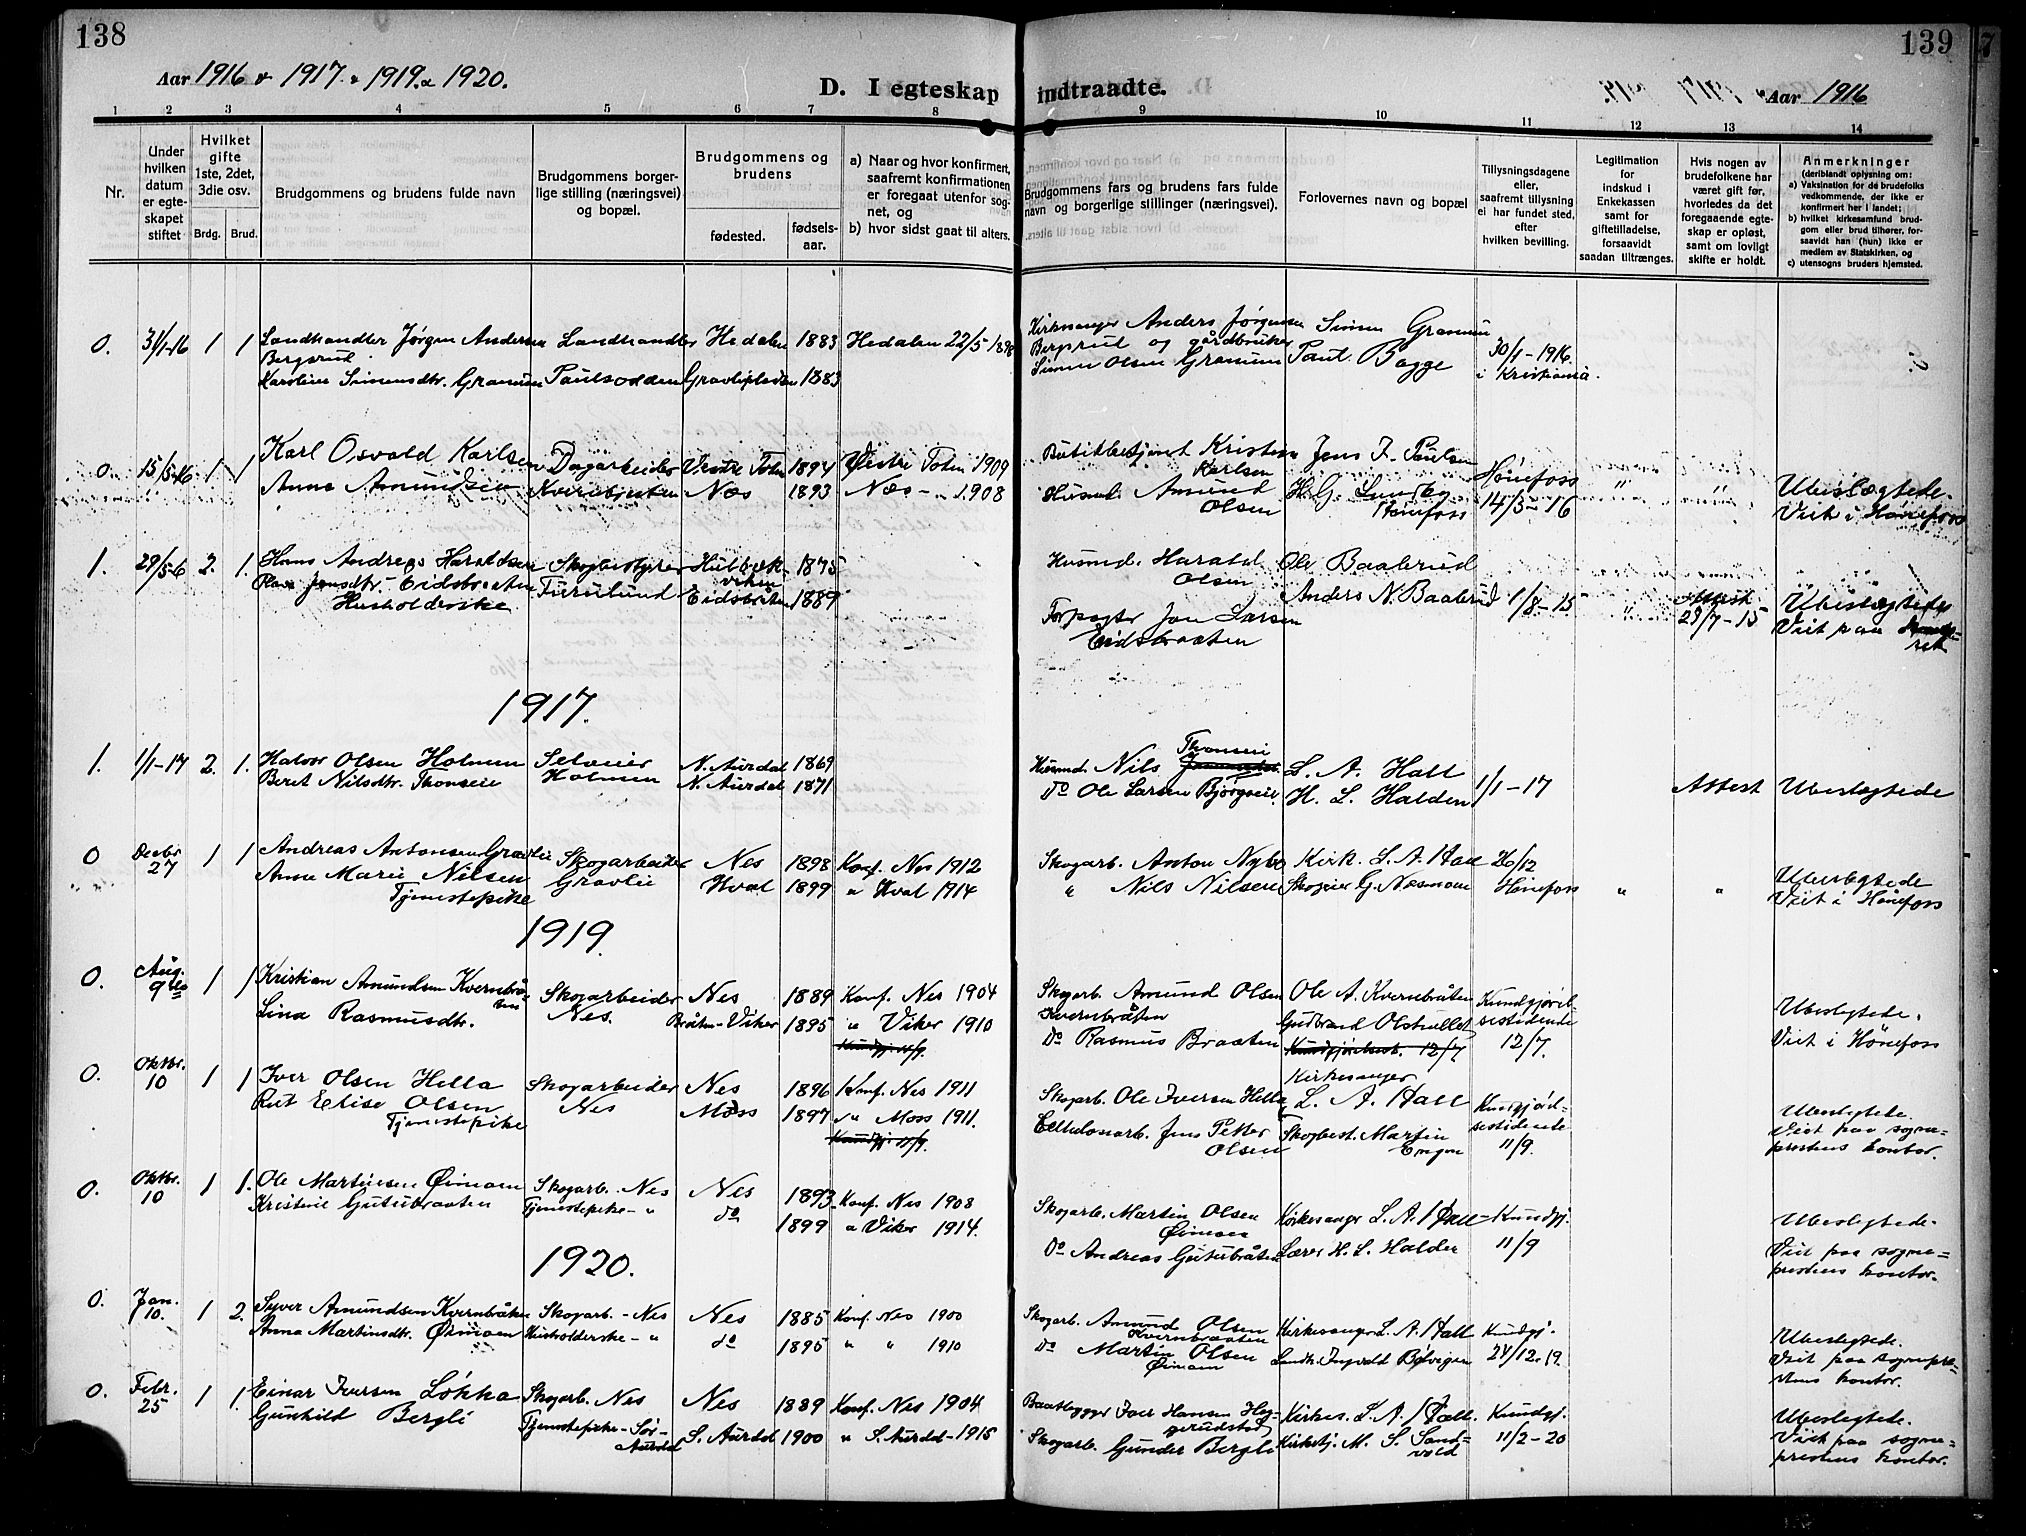 138
Aar 1916 & 1917. & 1919. & 1920.
D. I egteskap indtraadte.
Aar 1916
139
1 2 3 4 5 6 7 8 9 10 11 12 13 14
Nr.
Under hvilken datum er egte-skapet stiftet
Hvilket gifte 1ste, 2det, 3die osv.
Brdg. Brud.
Brudgommens og brudens fulde navn
Brudgommens borger-lige stilling (næringsvei) og bopæl.
Brudgommens og brudens
fødested. fødsels-aar.
a) Naar og hvor konfirmert, saafremt konfirmationen er foregaat utenfor sog-net, og
b) hvor sidst gaat til alters.
Brudgommens fars og brudens fars fulde navn og borgerlige stillinger (næringsvei).
Forlovernes navn og bopæl
Tillysningsdagene eller, saafremt tillysning ei har fundet sted, efter hvilken bevilling.
Legitimation for indskud i Enkekassen samt for giftetilladelse, forsaavidt saadan tiltrænges.
Hvis nogen av brudefolkene har været gift før, hvorledes da det foregaaende egte-skap er opløst, samt om lovligt skifte er holdt.
Anmerkninger
(deriblandt oplysning om:
a) Vaksination for de brudefolks vedkommende, der ikke er konfirmert her i landet;
b) hvilket kirkesamfund brud-gom eller brud tilhører, for-saavidt han (hun) ikke er medlem av Statskirken, og
c) utensogns bruders hjemsted.
0. 31/1-16 1 1 Landhandler Jørgen Andersen Landhandler Hedalen 1883 Hedalen 22/5 1898 Kirkesanger Anders Jørgensen Simen Granum
Bergsrud Bergsrud og gårdbruker 30/1-1916.
Karoline Simensdtr. Granum Paulsodden 1883 Simen Olsen Granum Paul Bagge i Kristiania.
0 15/5-16 1 1 Karl Osvald Karlsen Dagarbeider Vestre Toten 1894 Østre Toten 1909 Butikbetjent Kristian Karlsen Jens F. Paulsen Hønefoss
Anna Amundsen Kvernbjørken Næs 1893 Næs - 1908 Husmd. Amund Olsen H. G. Lundby Hønefoss 14/5-16 " " Ubeslægtede. Viet i Hønefoss
1. 29/5-6 2. 1. Hans Andreas Haraldsen Skogbestyrer 1875 Husmd. Harald Olsen Ole Baalerud
Jonsdtr. Eidsbraaten Eidsbråten 1889 Forpagter Jon Larsen Anders N. Baalerud 1/8-15 " Attest 29/7-15 Ubeslægtede
Husholderske Eidsbraaten Viet paa
1917.
1. 1/1-17 2. 1. Halvor Olsen Holmen Selveier N. Aurdal 1869 Husmd. Nils Thonseie L. A. Hall
Beret Nilsdtr. Thonseie Holmen N. Aurdal 1871 Do Ole Larsen Bjørgseie. H. L. Halden 1/1-17 Attest Ubeslegtede
0 Decbr 27 1 1 Andreas Antonsen Gravlie Skogarbeider Nes 1898 Konf. Nes 1912 Skogarb. Anton Nybo Kirk. L. A. Hall 26/12
Anna Marie Nilsen Gravlie Hval 1899 " Hval 1914 " Nils Nilsen Skogeier G. Næsmoen Hønefoss " " Ubeslegtede
Tjenestepike Viet i Hønefoss
1919.
0. Aug. 9de 1 1 Kristian Amundsen Kvernbråten Skogarbeider Nes 1889 Konf. Nes 1904 Skogarb. Amund Olsen Kvernbråten Ole A. Kvernbråten Kundgjørel-sestidende
Lina Rasmusdtr. Nes. Bråten-Viker 1895 " Viker 1910 Do Rasmus Braaten Gudbrand Olshullet 12/7. Ubeslegtede.
Kundgj. 11/9. Kundgjørelsest. 12/7 Viet i Hønefoss
0. Oktbr. 10 1 1 Iver Olsen Hella Skogarbeider Nes 1896 Konf. Nes 1911 Skogarb. Ole Iversen Hella Kirkesanger L. A. Hall Kundgjørel-sestidende
Rut Elise Olsen Nes Moss 1897 " Moss 1911. Cellulosarb. Jens Petter Olsen Skogbest. Martin Engen 11/9. Ubeslegtede.
Tjenestepike Kundgj. 11/9. Viet paa sogne-prestens kontor.
0. Oktbr. 10 1 1. Ole Martinsen Øimoen Skogarb. - Nes Nes 1893 Konf. Nes 1908 Skogarb. Martin Olsen Øimoen Kirkesanger L. A. Hall Kundgj.
Kristine Gutubraaten Tjenestepike - " do 1899 " Viker 1914. Do Andreas Gutubråten Lærer H. L. Halden 11/9 Ubeslegtede. Viet paa sogne-prestens kontor.
1920.
0. Jan. 10. 1 2. Syver Amundsen Kvernbråten Skogarb. - Nes Nes 1885 Konf. Nes 1900 Skogarb. Amund Olsen Kvernbraaten Kirkesanger L. A. Hall Kundgj.
Anna Martinsdtr. Øimoen Husholderske - " do 1895 " " 1910 Do Martin Olsen Øimoen Landh. Ingvald Bølvigen 24/12. 19. Ubeslegtede. Viet paa sognepre-stens kontor.
0. Febr. 25 1 1. Einar Iversen Løkka Skogarb. Nes Nes 1889 Konf. Nes 1904 Baatbygger Iver Hansen Hag-gerudstad Kirkes. L. A. Hall. Kundgj.
Gunhild Bergli Tjenestepike - Sør-Aurdal S. Aurdal 1900 " S. Aurdal - 1915 Skogarb. Gunder Bergli Kirketj. M. S. Sand-vold 11/2-20 Ubeslegtede. Viet paa sogne-prestens kontor.